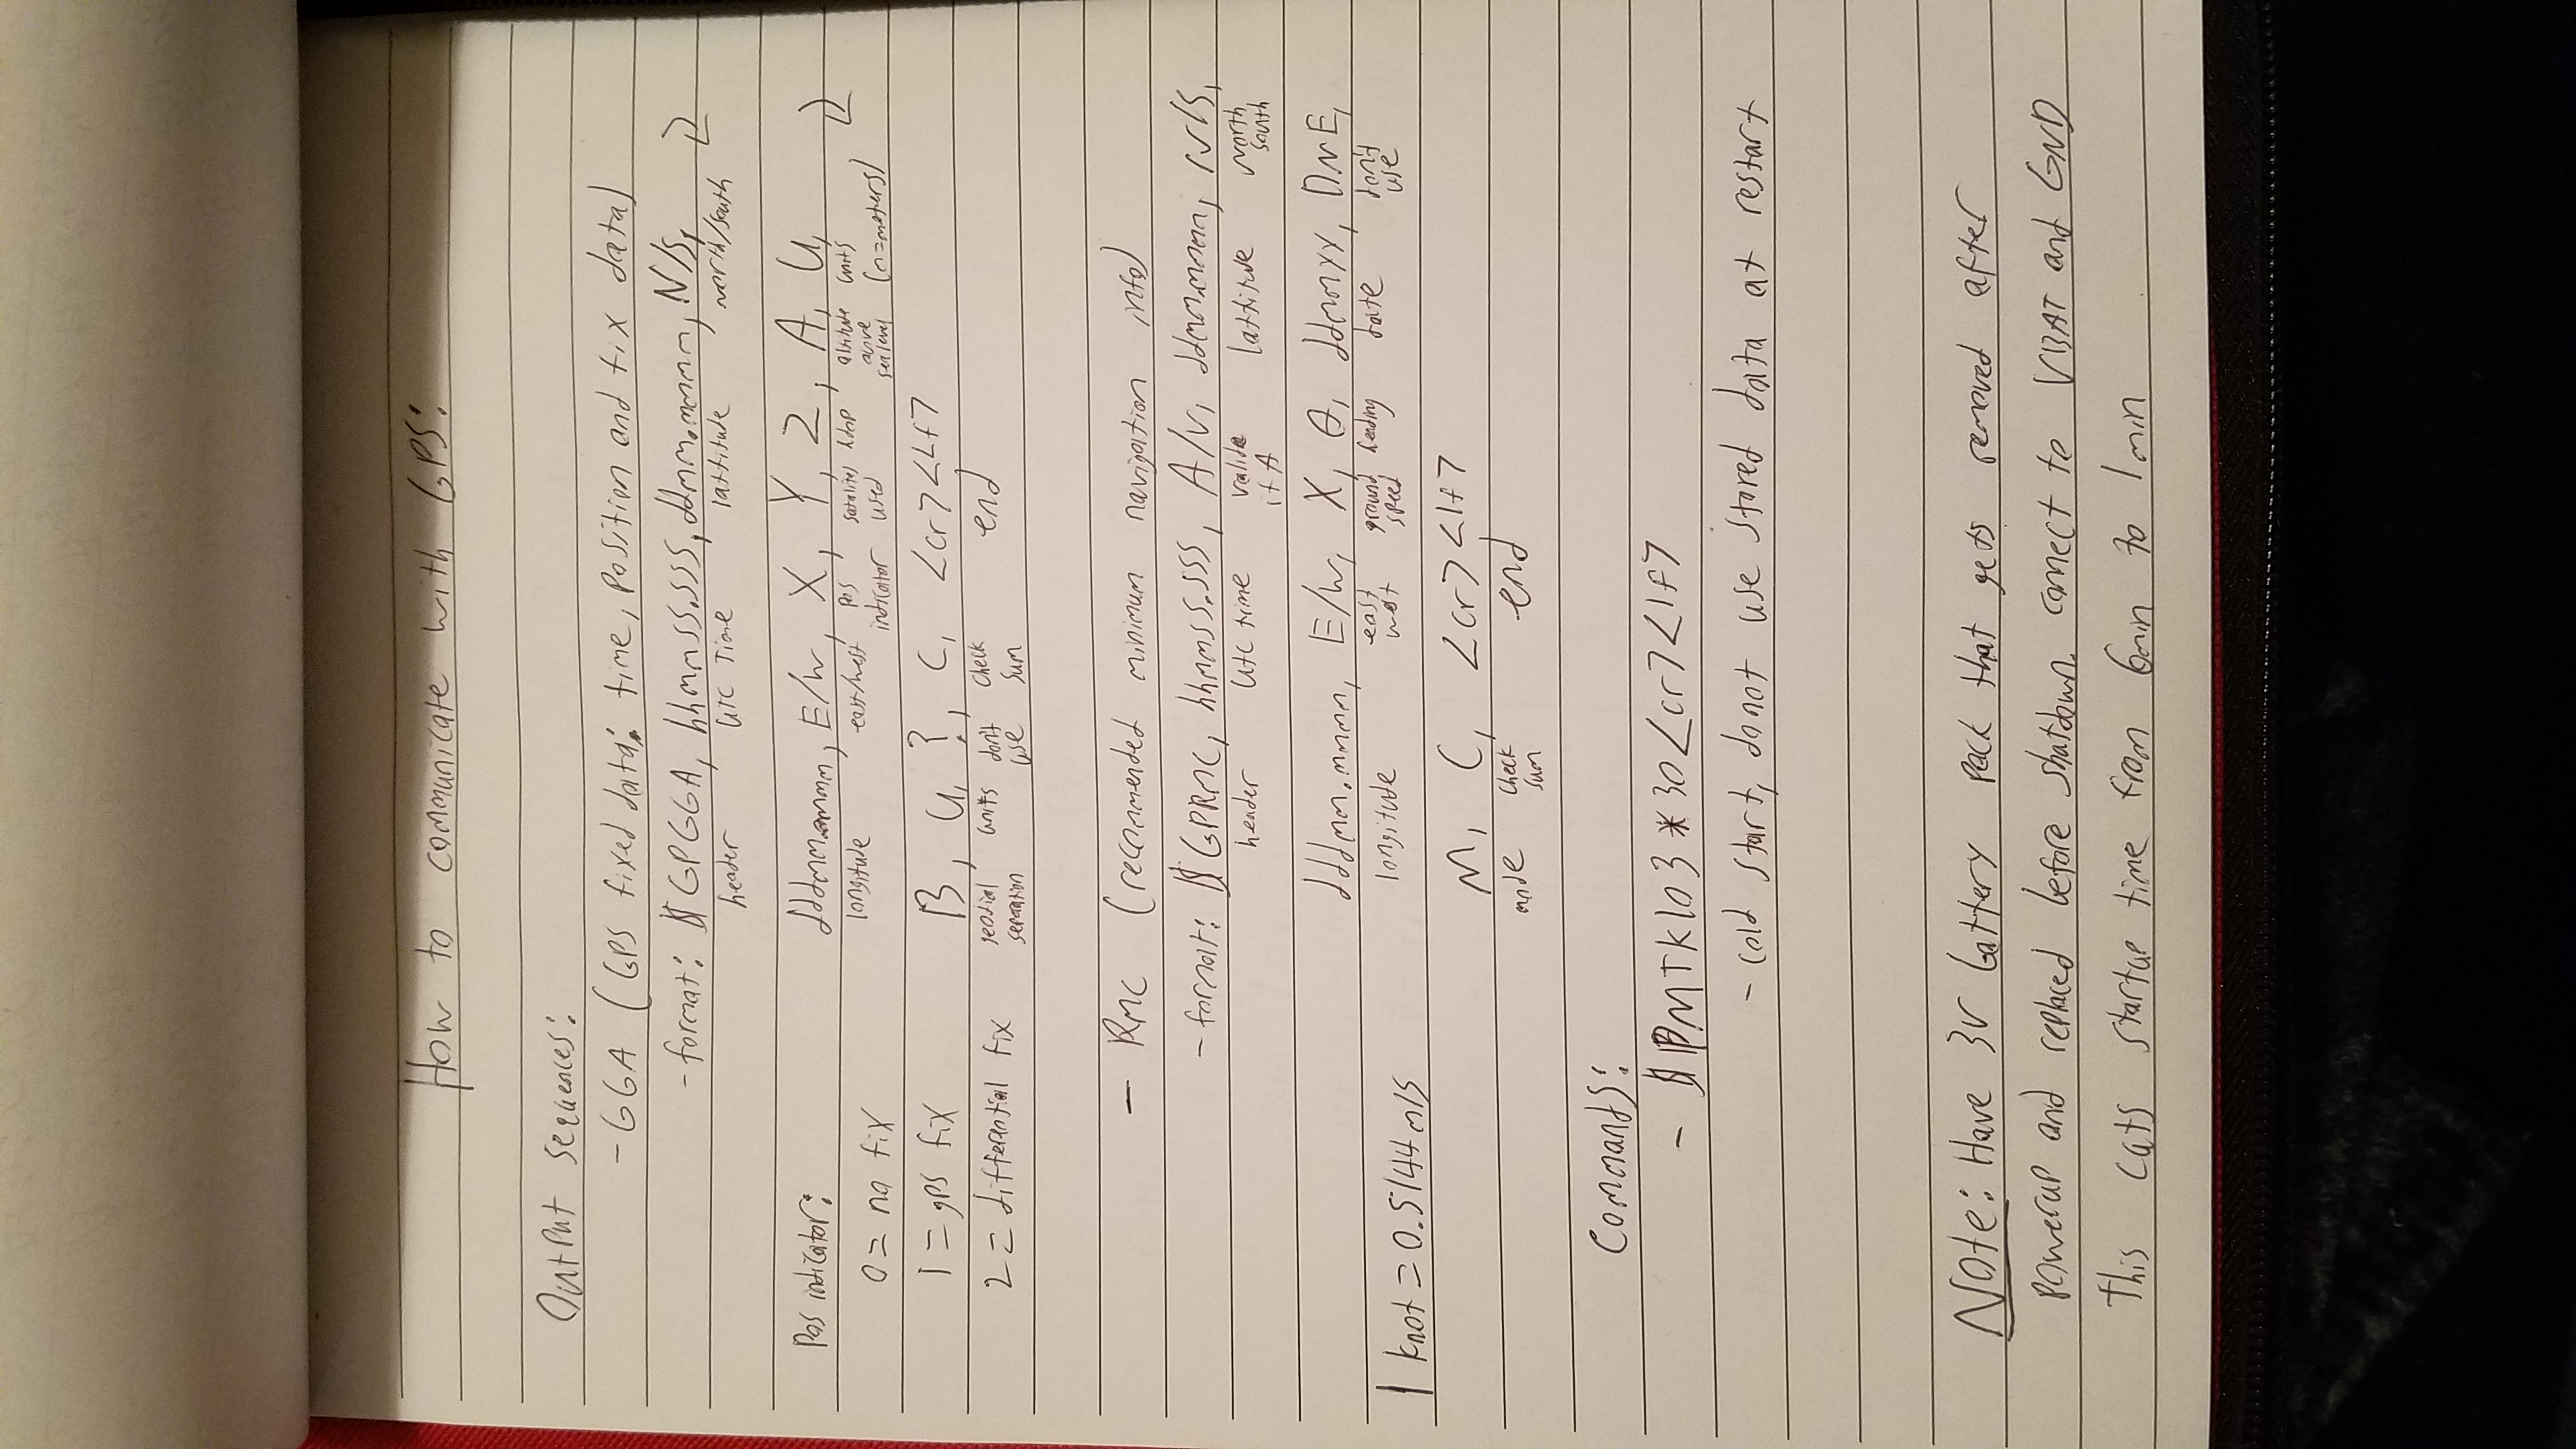 How to communicate with GPS:
Output sequences:
- GGA (GPS fixed data: time, position and fix data)
- format: $GPGGA, hhmmss.sss, ddmm.mmmm, N/S,
header UTC Time lattitude north/south
Pos indicator: dddmm.mmmm, E/W, X, Y, Z, A, U,
longitude east/west pos indicator satalites used hdop altitude above sea level units (m=meters)
0 = no fix
1 = gps fix B, U, ?, C, <cr><Lf>
2 = differential fix separation units don't use check sum end
- RMC (recommended minimum navigation info)
- format: $GPRMC, hhmmss.sss, A/V, ddmm.mmmm, N/S,
header UTC time valid if A lattitude north south
dddmm.mmmm, E/W, X, θ, ddmmyy, DNE,
longitude east west ground speed heading date don't use
1 knot = 0.5144 m/s
M, C, <cr><lf>
mode check sum end
Commands:
- $PMTK103*30<cr><lf>
- cold start, do not use stored data at restart
Note: Have 3V battery pack that gets removed after
powerup and replaced before shutdown. connect to VBAT and GND
This cuts startup time from 6min to 1min